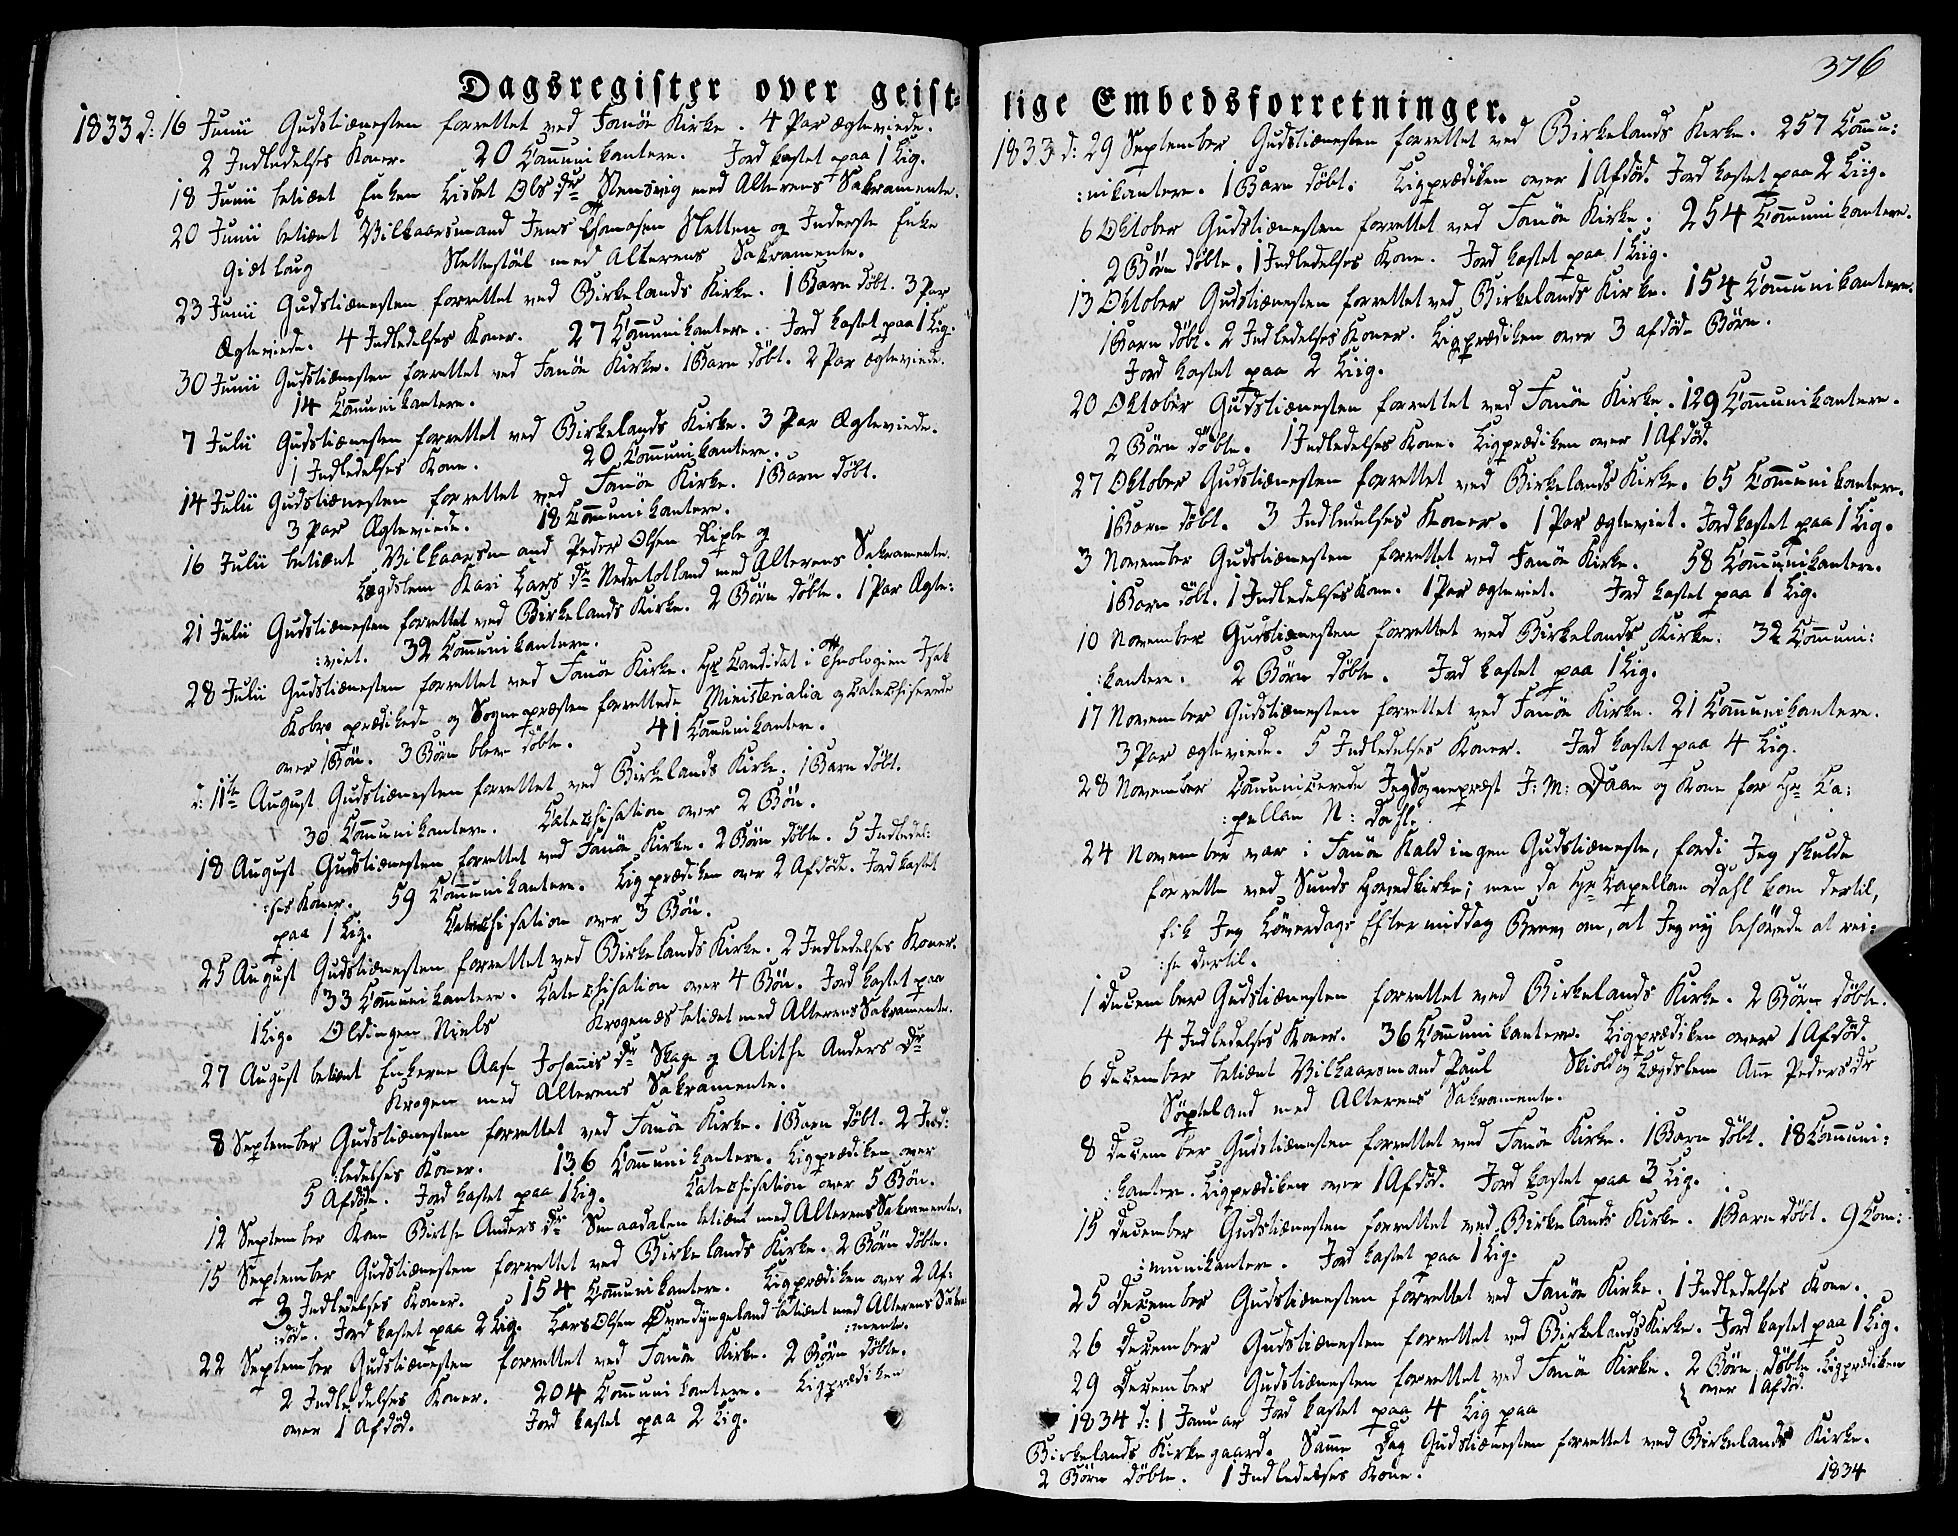 Dagsregister over geist-
1833 d: 16 Junii Gudstiænesten forrettet ved Fanöe Kirke. 4 Par ægteviede.
2 Indledelses Koner. 20 Communikantere. Jord kastet paa 1 Lig.
18 Junii betient Enken Lisbet Ols dr Stensvig med Alterens Sakramente.
20 Junii betient Vilkaarsmand Jens Thomasen Sletten og Inderste Enke
Giæt long Slettestöel med Alterens Sakramente.
23 Junii Gudstiænesten forrettet ved Birkelands Kirke. 1 Barn döbt. 3 Par
Ægteviede. 4 Indledelses Koner. 27 Communikantere. Jord kastet paa 1 Lig.
30 Junii Gudstiænesten forrettet ved Fanöe Kirke. 1 Barn döbt. 2 Par ægteviede.
14 Communikantere.
7 Julii Gudstiænesten forrettet ved Birkelands Kirke. 3 Par Ægteviede.
1 Indledelses Kone. 20 Communikantere.
14 Julii Gudstiænesten forrettet ved Fanöe Kirke. 1 Barn döbt.
3 Par Ægteviede. 18 Communikantere.
16 Julii betient Vilkaarsmand Peder Olsen Riple og
Lægdslem Kari Lars dr Nedretotland med Alterens Sakramente.
21 Julii Gudstiænesten forrettet ved Birkelands Kirke. 2 Börn döbte. 1 Par Ægte:
:viet. 32 Communikantere.
28 Julii Gudstiænesten forrettet ved Fanöe Kirke. Hr Candidat i Theologien Isak
Kobro prædikede og Sognepræsten forrettede Ministerialia og Catechiserede
over 1 Bön. 3 Börn bleve döbte. 41 Communikantere.
d: 11te August Gudstiænesten forrettet ved Birkelands Kirke. 1 Barn döbt.
30 Communikantere. Catechisation over 2 Bön.
18 August Gudstiænesten forrettet ved Fanöe Kirke. 2 Börn döbte. 5 Indledel:
:ses Koner. 59 Communikantere. Ligprædiken over 2 Afdöde. Jord kastet
paa 1 Lig. Catechisation over 3 Bön.
25 August Gudstiænesten forrettet ved Birkelands Kirke. 2 Indledelses Koner.
33 Communikantere. Catechisation over 4 Bön. Jord kastet paa
1 Lig. Oldingen Niels Krogenæs betient med Alterens Sakramente.
27 August betient Enkerne Aase Johannis dr Skage og Alithe Anders dr
Krogen med Alterens Sakramente.
8 September Gudstiænesten forrettet ved Fanöe Kirke. 1 Barn döbt. 2 Ind:
:ledelses Koner. 136 Communikantere. Ligprædiken over
5 Afdöde. Jord kastet paa 1 Lig. Catechisation over 5 Bön.
12 September Kone Birthe Anders dr Smaadalen betient med Alterens Sakramente.
15 September Gudstiænesten forrettet ved Birkelands Kirke. 2 Börn döbte.
3 Indledelses Koner. 154 Communikantere. Ligprædiken over 2 Af:
:döde. Jord kastet paa 2 Lig. Lars Olsen Övredyngeland betient med Alterens Sakra
:mente.
22 September Gudstiænesten forrettet ved Fanöe Kirke. 2 Börn döbte.
2 Indledelses Koner. 204 Communikantere. Ligprædiken
over 1 Afdöd. Jord kastet paa 2 Lig.
376
lige Embedsforretninger.
1833 d: 29 September Gudstiænesten forrettet ved Birkelands Kirke. 257 Commu:
:nikantere. 1 Barn döbt. Ligprædiken over 1 Afdöd. Jord kastet paa 2 Liig.
6 Oktober Gudstiænesten forrettet ved Fanöe Kirke. 254 Communikantere.
2 Börn döbte. 1 Indledelses Kone. Jord kastet paa 1 Liig.
13 Oktober Gudstiænesten forrettet ved Birkelands Kirke. 154 Communikantere.
1 Barn döbt. 2 Indledelses Koner. Ligprædiken over 3 afdöde Börn.
Jord kastet paa 2 Liig.
20 Oktober Gudstiænesten forrettet ved Fanöe Kirke. 129 Communikantere.
2 Börn döbte. 1 Indledelses Kone. Ligprædiken over 1 Afdöd.
27 Oktober Gudstiænesten forrettet ved Birkelands Kirke. 65 Communikantere.
1 Barn döbt. 3 Indledelses Koner. 1 Par ægteviet. Jord kastet paa 1 Lig.
3 November Gudstiænesten forrettet ved Fanöe Kirke. 58 Communikantere.
1 Barn döbt. 1 Indledelses Kone. 1 Par ægteviet. Jord kastet paa 1 Lig.
10 November Gudstiænesten forrettet ved Birkelands Kirke. 32 Communi:
:kantere. 2 Börn döbte. Jord kastet paa 1 Lig.
17 November Gudstiænesten forrettet ved Fanöe Kirke. 21 Communikantere.
3 Par ægteviede. 5 Indledelses Koner. Jord kastet paa 4 Lig.
28 November Communicerede Jeg Sognepræst J: M: Daae og Kone for Hr Ca:
:pellan N: Dahl.
24 November var i Fanöe Kald ingen Gudstiæneste, fordi Jeg skulde
forrette ved Sunds Hovedkirke; men da Hr Capellan Dahl kom dertil,
fik Jeg Löverdags Eftermiddag Brev om, at Jeg ey behövede at rei:
:se dertil.
1 December Gudstiænesten forrettet ved Birkelands Kirke. 2 Börn döbte.
4 Indledelses Koner. 36 Communikantere. Ligprædiken over 1 Afdöd.
6 December betient Vilkaarsmand Paul Skiold og Lægdslem Ane Peders dr
Söpteland med Alterens Sakramente.
8 December Gudstiænesten forrettet ved Fanöe Kirke. 1 Barn döbt. 18 Communi:
:kantere. Ligprædiken over 1 Afdöd. Jord kastet paa 3 Lig.
15 December Gudstiænesten forrettet ved Birkelands Kirke. 1 Barn döbt. 9 Com:
:munikantere. Jord kastet paa 1 Lig.
25 December Gudstiænesten forrettet ved Fanöe Kirke. 1 Indledelses Kone.
26 December Gudstiænesten forrettet ved Birkelands Kirke. Jord kastet paa 1 Lig.
29 December Gudstiænesten forrettet ved Fanöe Kirke. 2 Börn döbte. Ligprædiken
over 1 Afdöd.
1834 d: 1 Januar Jord kastet paa 4 Lig paa
Birkelands Kirkegaard. Samme Dag Gudstiænesten forrettet ved Birkelands Kirke.
2 Börn döbte. 1 Indledelses Kone.
1834